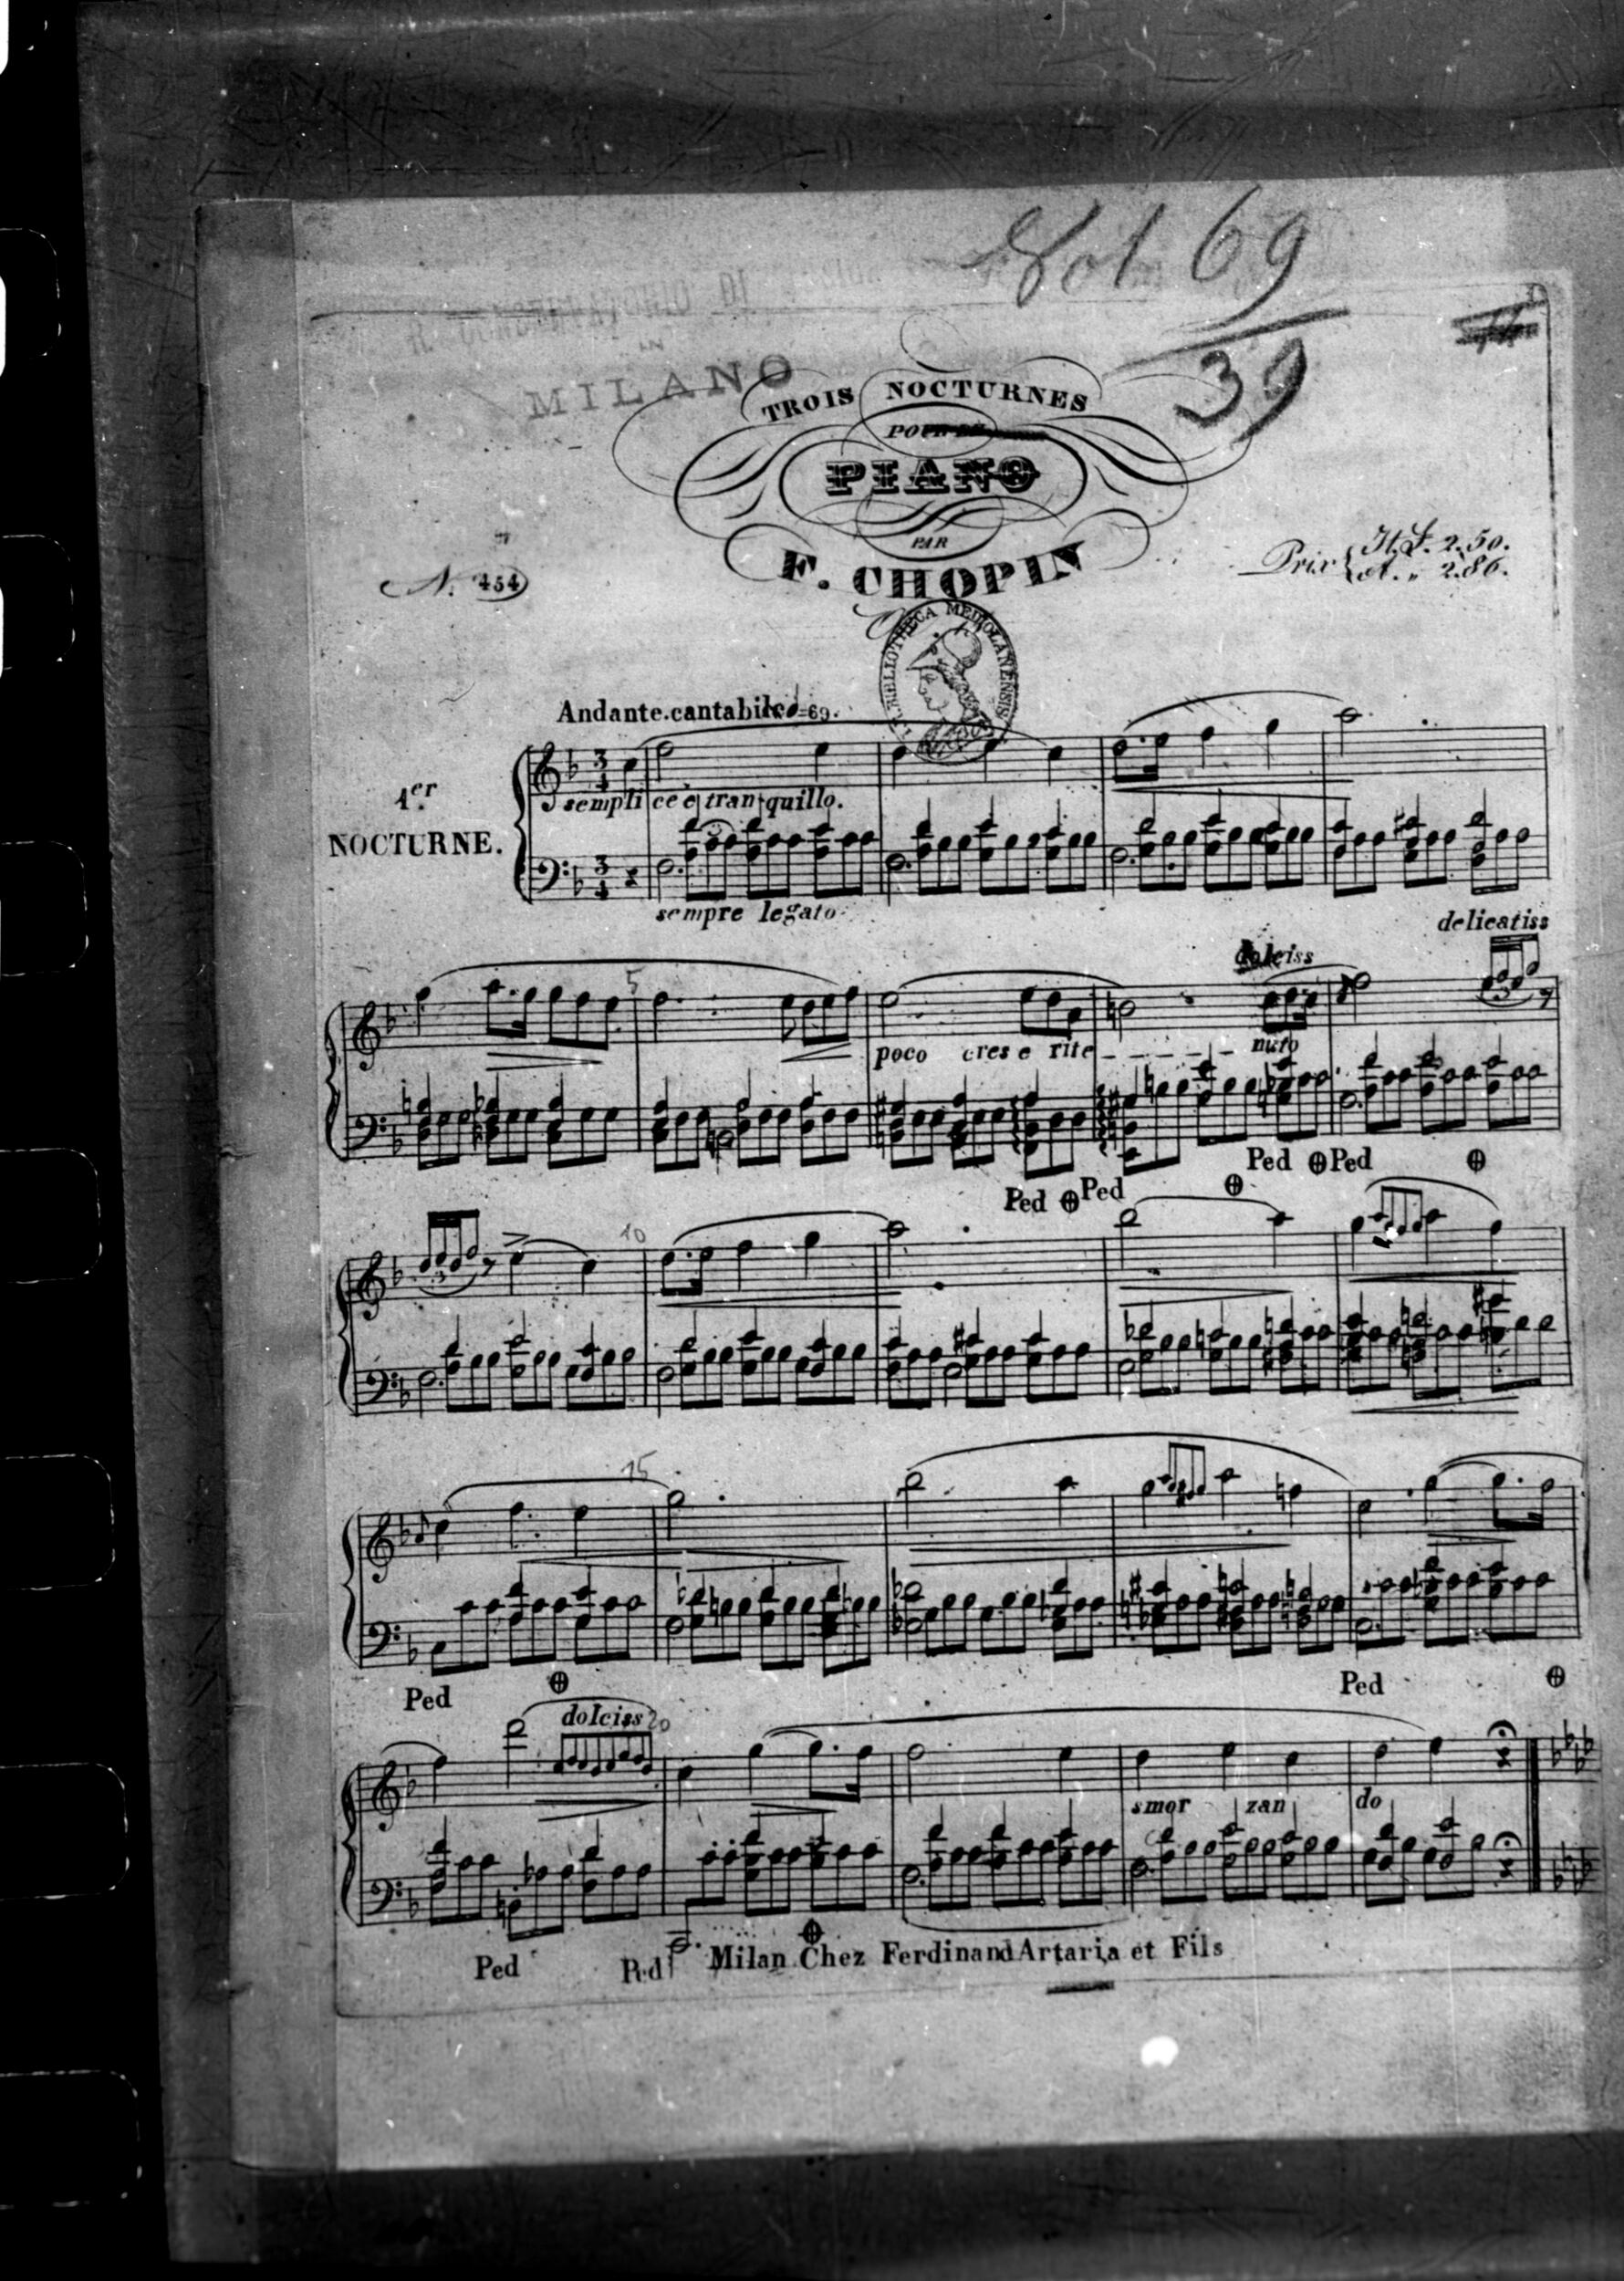 Vol 69
39
R. CONSERVATORIO DI
IN
MILANO
TROIS NOCTURNES
POUR LE
PIANO
PAR
F. CHOPIN
N. 454
Prix It. L. 2. 50.
A. „ 2. 86.
I.R. BIBLIOTHECA MEDIOLANENSIS
Andante.cantabile ♩=69.
1er.
NOCTURNE.
3 4
sempli ce è tranquillo.
3
3 4
sempre legato
delicatiss
5
dolciss
3
poco cres e rite _ _ _ _ _ nuto
Ped Ped
Ped Ped
10
3
15
Ped
Ped
dolciss 20
smor zan do
Ped Ped
Milan Chez Ferdinand Artaria et Fils